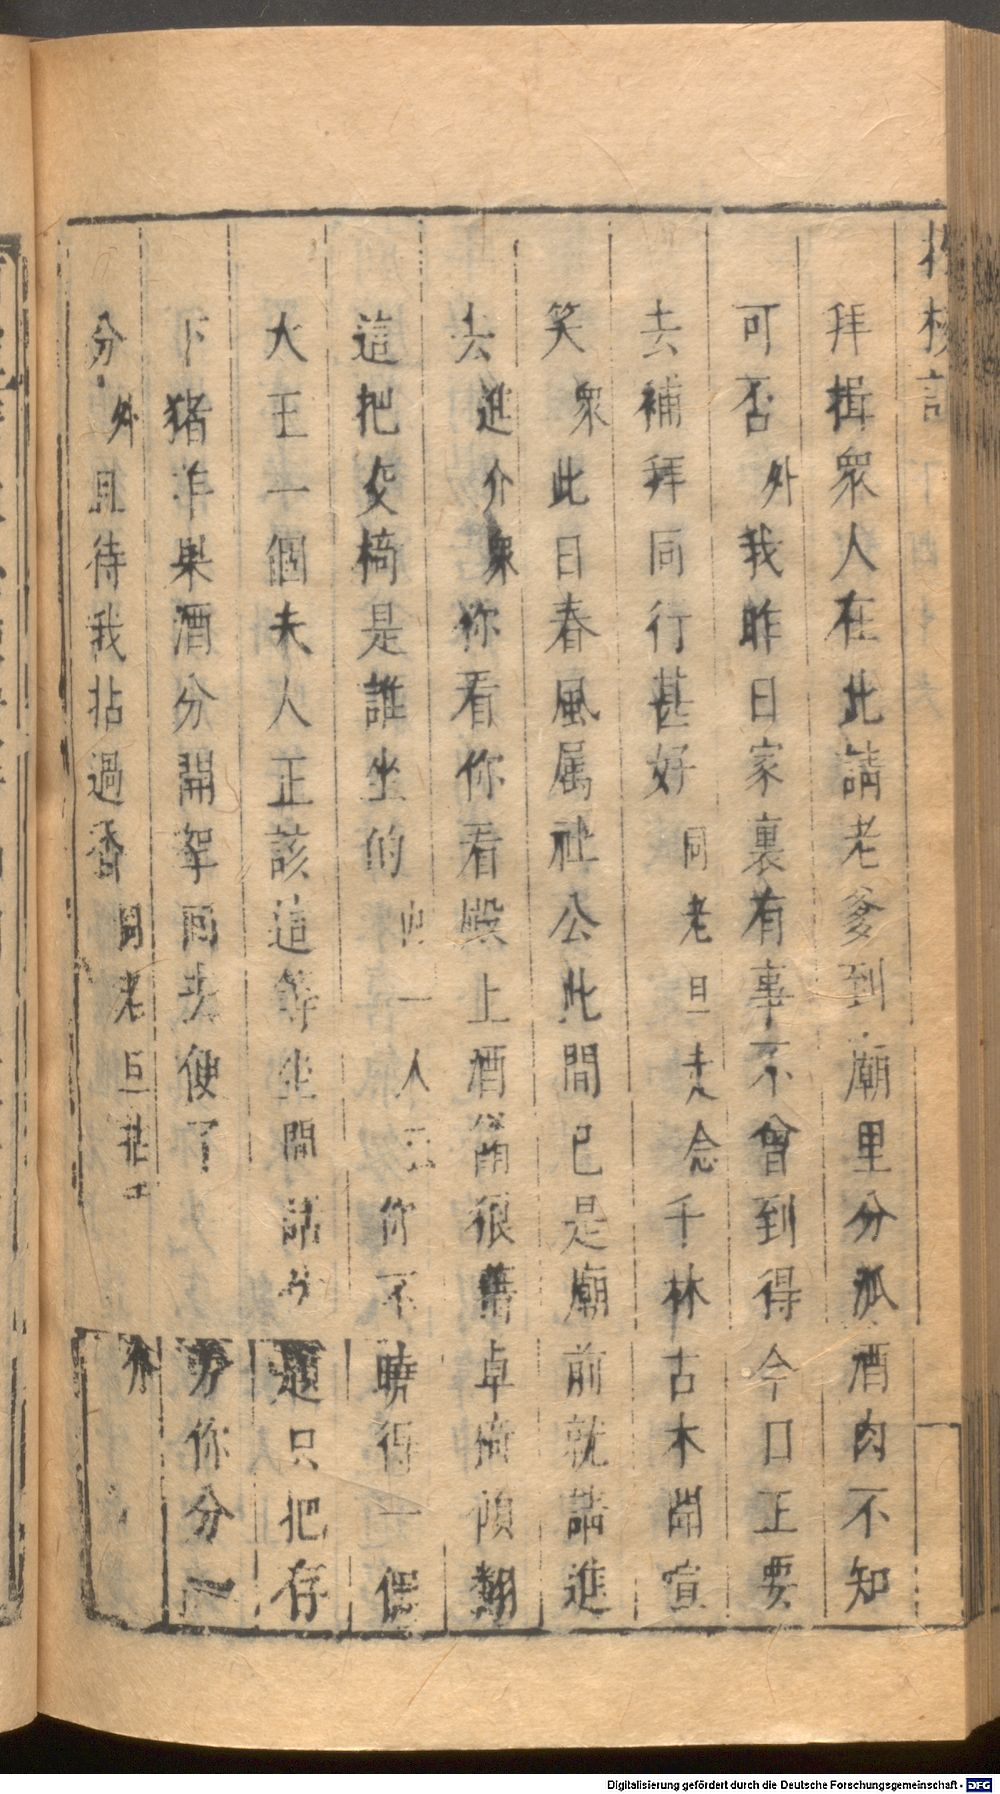 拜揖衆人在此請老爹到廟里分派酒肉不知
可否外我昨日家裏有事不曾到得今日正要
去補拜同行甚好同老旦走念千林古木閙喧
笑衆此日春風属社公此間已是廟前就請進
去進介衆你看你看殿上酒甫狼藉卓倚傾翻
這把交椅是誰坐的一人云你不曉得一個
大王一個夫人正該這等坐閒話少題只把存
下猪羊果酒分開拏回去便了你分一
分外且待我拈過香同老旦拈
Digitalisierung gefördert durch die Deutsche Forschungsgemeinschaft - DFG